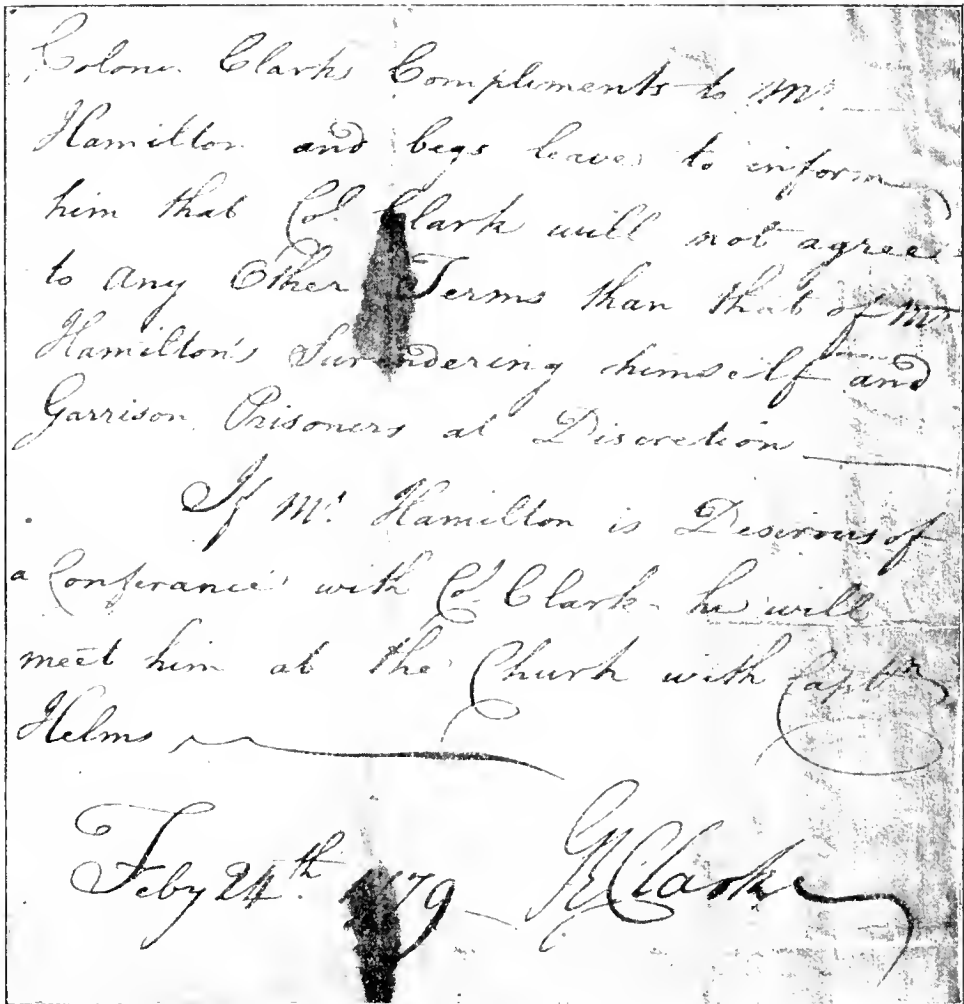 Colonel Clarks Compliments to Mr.
Hamilton and begs leave to inform
him that Col. Clark will not agree
to any Other Terms than that of Mr.
Hamilton's Surendering himself and
Garrison Prisoners at Discretion
If Mr. Hamilton is Desirous of
a Conferance with Col. Clark he will
meet him at the Churh with Captn.
Helms
Feby 24th. 1779 GR Clark